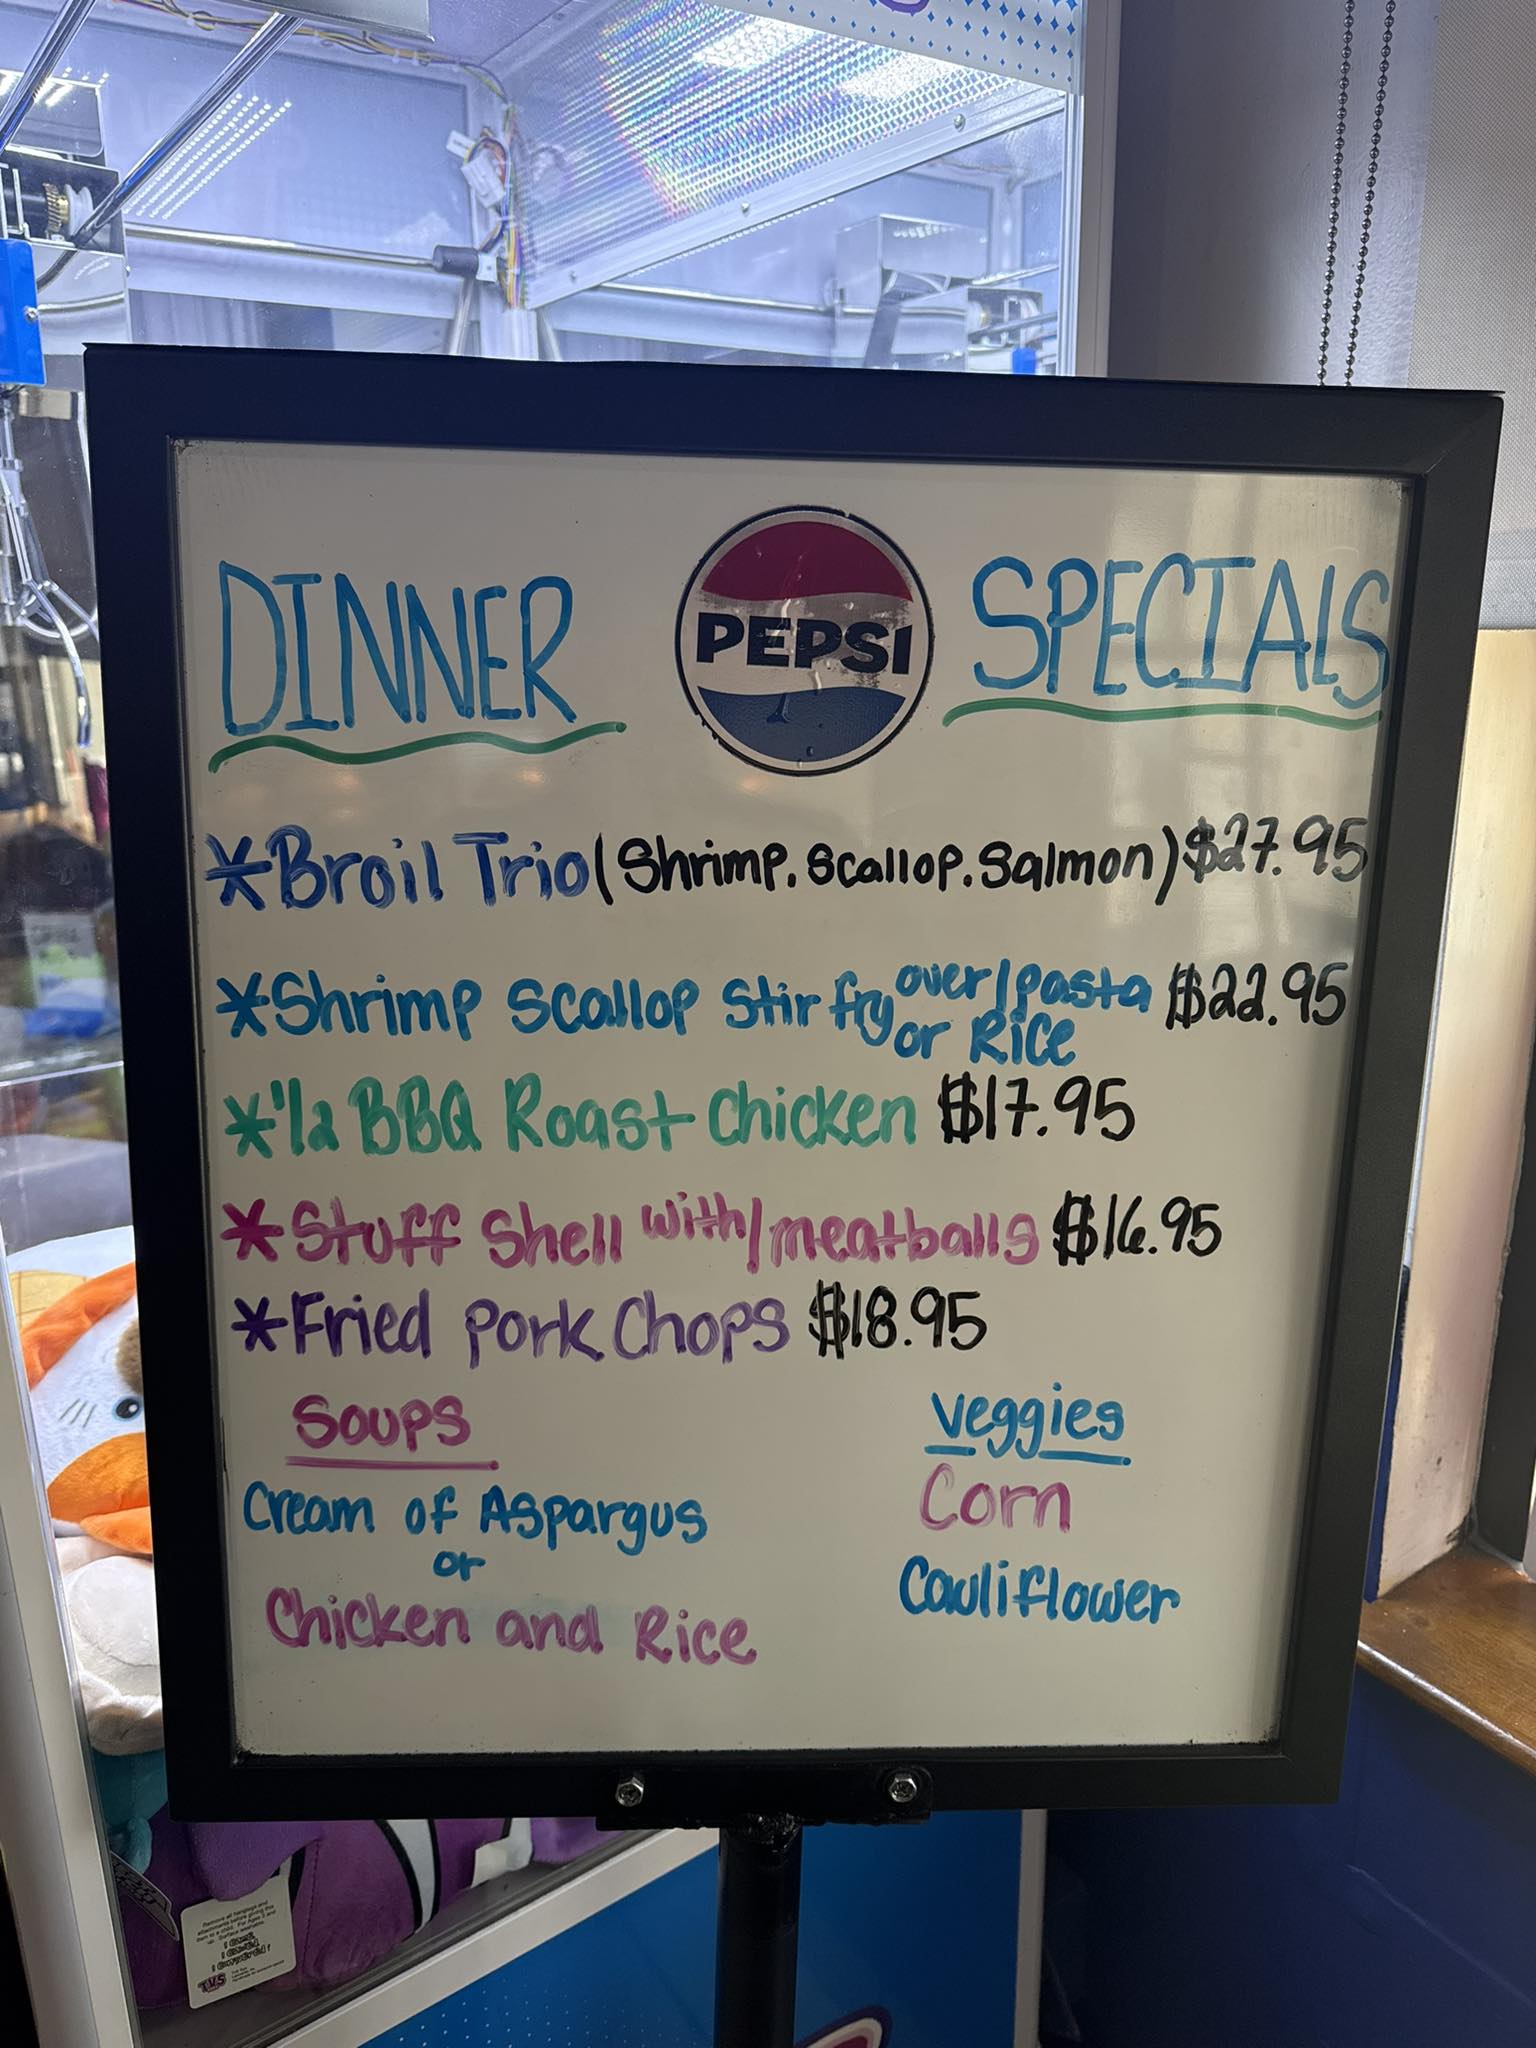 DINNER PEPSI SPECIALS
*Broil Trio (Shrimp, Scallop, Salmon) $27.95
*Shrimp Scallop Stir fry over/pasta or Rice $22.95
*1/2 BBQ Roast Chicken $17.95
*Stuff Shell with/meatballs $16.95
*Fried Pork Chops $18.95
Soups
Cream of Aspargus
or
Chicken and Rice
Veggies
Corn
Cauliflower
TVS